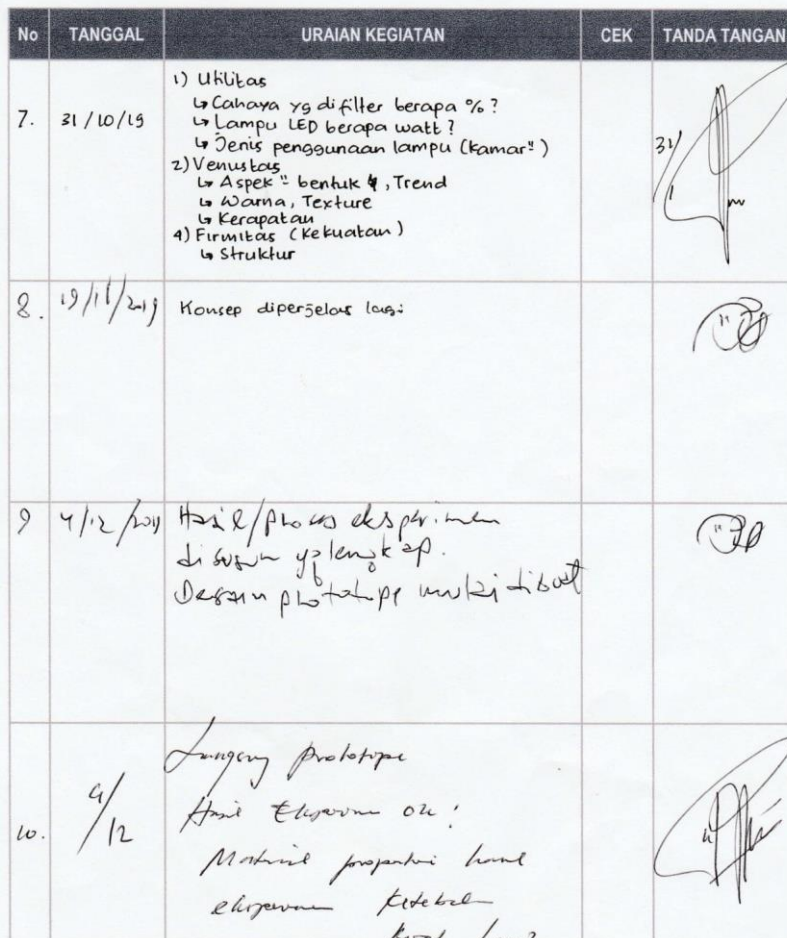 No TANGGAL URAIAN KEGIATAN CEK TANDA TANGAN
7. 31/10/19
1) Utilitas
↳ Cahaya yg difilter berapa %?
↳ Lampu LED berapa watt?
↳ Jenis penggunaan lampu (kamar")
2) Venustas
↳ Aspek" bentuk, Trend
↳ Warna, Texture
↳ Kerapatan
4) Firmitas (Kekuatan)
↳ Struktur
31/
8. 19/11/2019 Konsep diperjelas lagi
9 4/12/2019 Hasil/proses eksperimen
disusun yg lengkap.
Desain prototype mulai dibuat
10. 9/12
Langsung prototype
Hasil Eksperimen ok!
Material properti hasil
eksperimen